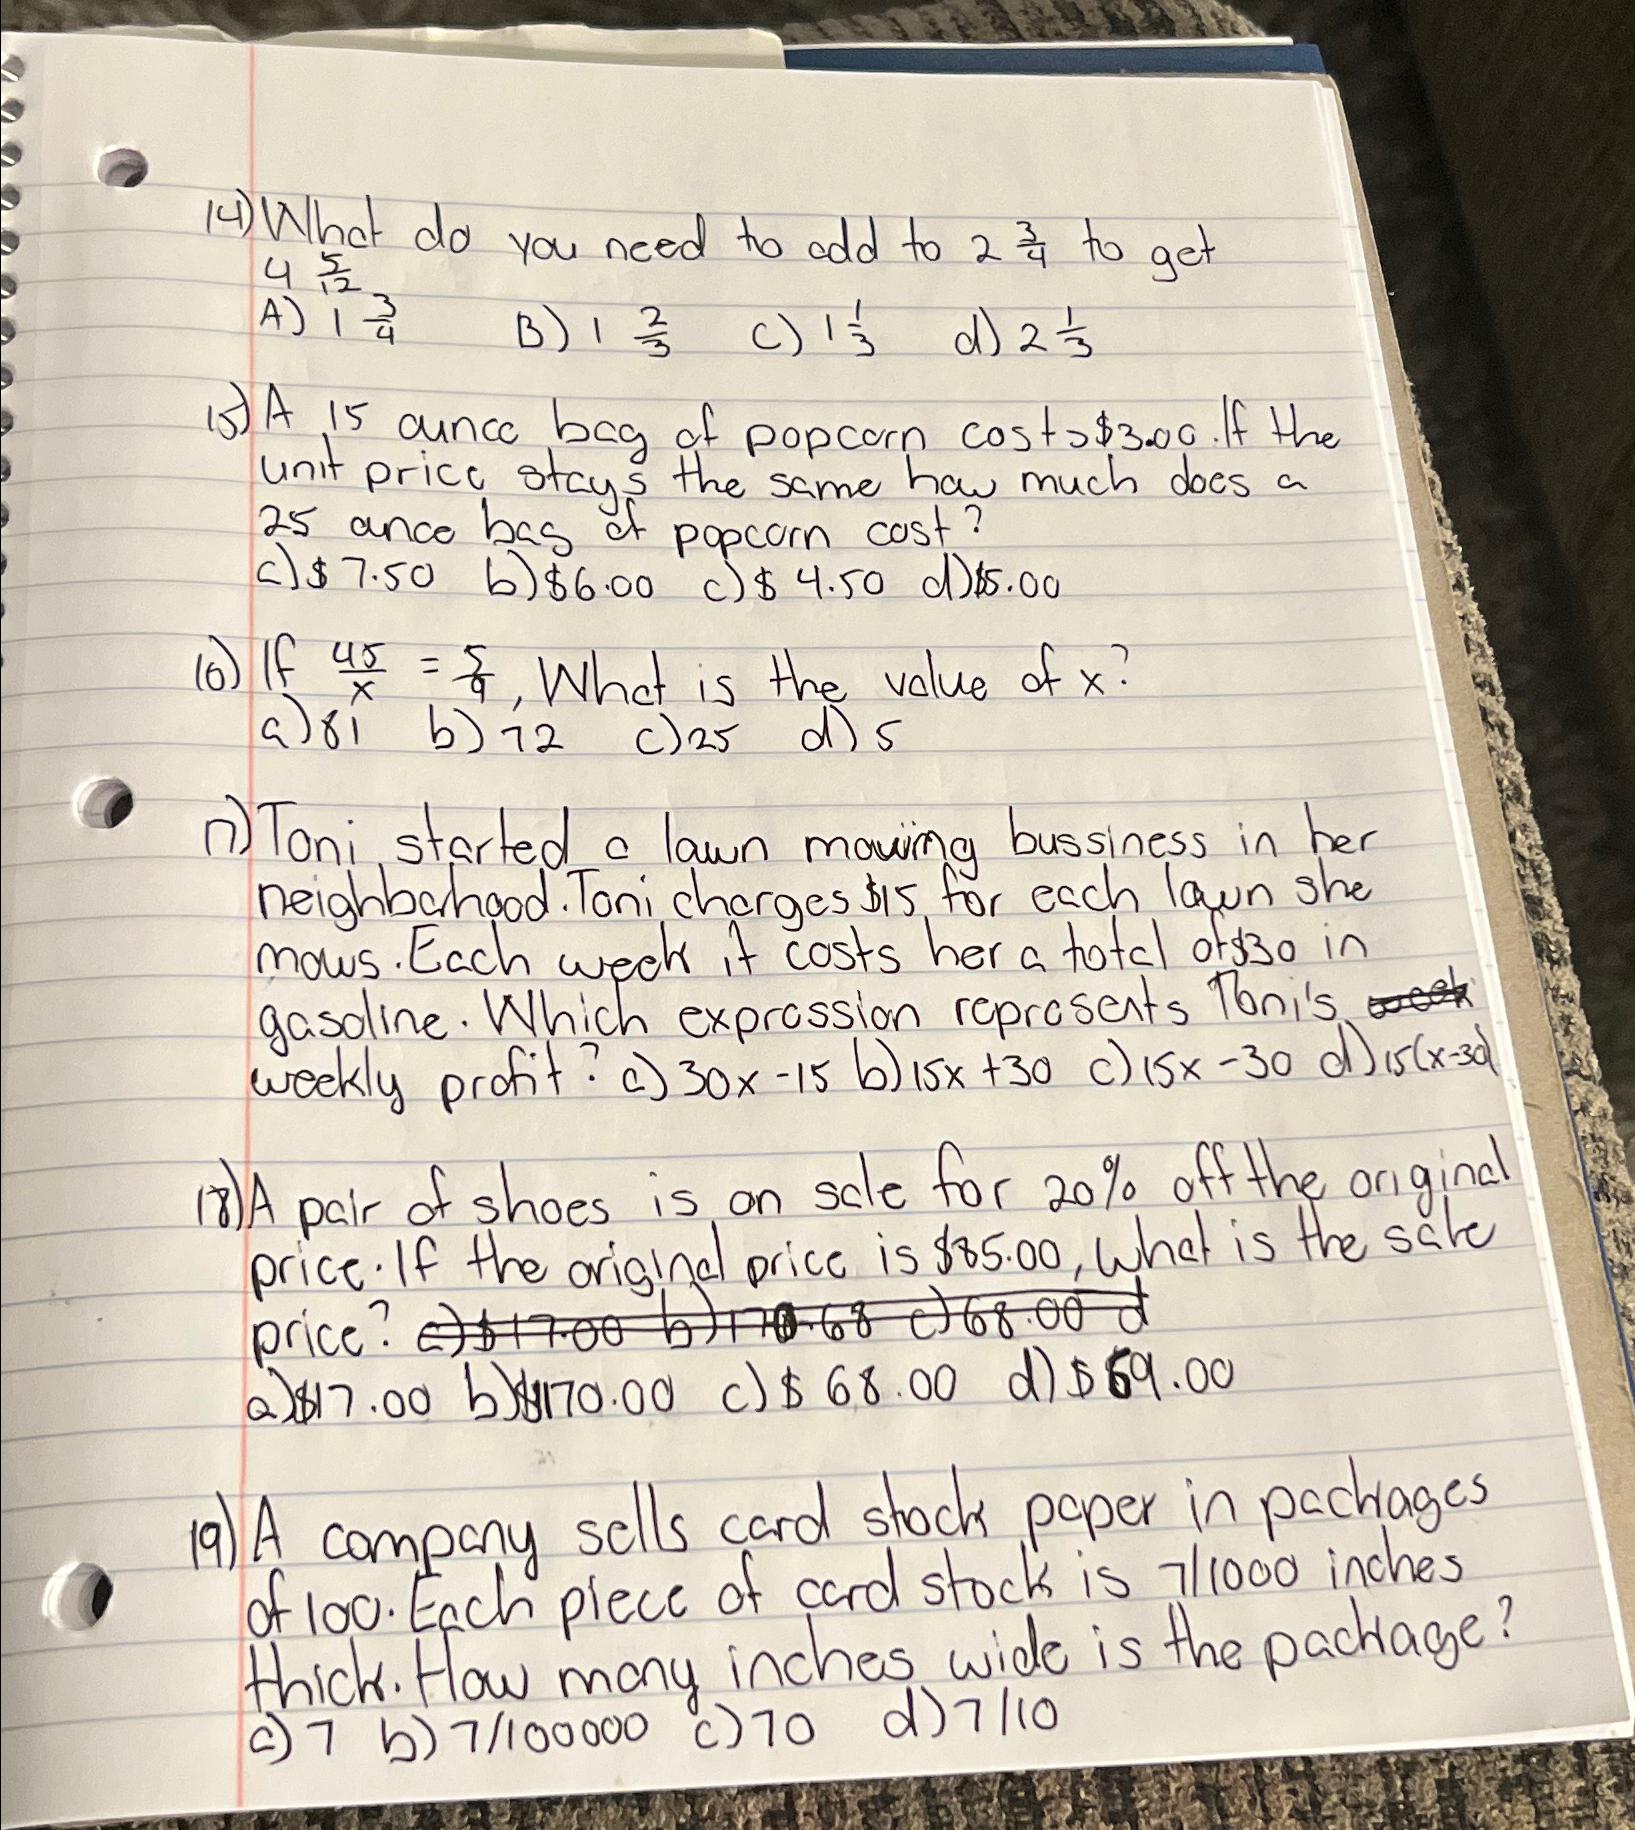 14) What do you need to add to 2 3/4 to get
4 5/12
A) 1 3/4 B) 1 2/3 C) 1 1/3 d) 2 1/3
15) A 15 ounce bag of popcorn costs $3.00. If the
unit price stays the same how much does a
25 ounce bag of popcorn cost?
a) $7.50 b) $6.00 c) $4.50 d) $5.00
16) If 45/x = 5/9, What is the value of x?
a) 81 b) 72 c) 25 d) 5
17) Toni started a lawn mowing bussiness in her
neighborhood. Toni charges $15 for each lawn she
mows. Each week it costs her a total of $30 in
gasoline. Which expression represents Toni's week
weekly profit? a) 30x-15 b) 15x+30 c) 15x-30 d) 15(x-30)
18) A pair of shoes is on sale for 20% off the original
price. If the original price is $85.00, what is the sale
price? a) $17.00 b) 170.68 c) 68.00 d
a) $17.00 b) $170.00 c) $68.00 d) $69.00
19) A company sells card stock paper in packages
of 100. Each piece of card stock is 7/1000 inches
thick. How many inches wide is the package?
a) 7 b) 7/100000 c) 70 d) 7/10